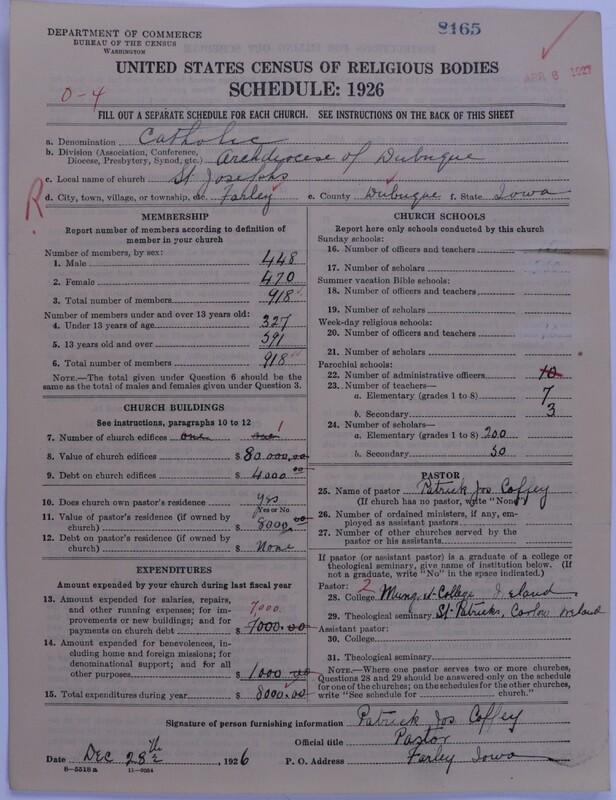 8165
DEPARTMENT OF COMMERCE
BUREAU OF THE CENSUS
WASHINGTON
APR 6 1927
UNITED STATES CENSUS OF RELIGIOUS BODIES
SCHEDULE: 1926
0-4
FILL OUT A SEPARATE SCHEDULE FOR EACH CHURCH. SEE INSTRUCTIONS ON THE BACK OF THIS SHEET
a. Denomination Catholic
b. Division (Association, Conference, Diocese, Presbytery, Synod, etc.) Archdiocese of Dubuque
c. Local name of church St Josephs
R
d. City, town, village, or township, etc. Farley e. County Dubuque f. State Iowa
MEMBERSHIP
Report number of members according to definition of
member in your church
Number of members, by sex:
1. Male 448
2. Female 470
3. Total number of members 918
Number of members under and over 13 years old:
4. Under 13 years of age 327
5. 13 years old and over 591
6. Total number of members 918
NOTE.—The total given under Question 6 should be the
same as the total of males and females given under Question 3.
CHURCH BUILDINGS
See instructions, paragraphs 10 to 12
7. Number of church edifices one one 1
8. Value of church edifices $ 80.000,00
9. Debt on church edifices $ 4000
10. Does church own pastor's residence yes
Yes or No
11. Value of pastor's residence (if owned by
church) $ 8000,00
12. Debt on pastor's residence (if owned by
church) $ None
EXPENDITURES
Amount expended by your church during last fiscal year
13. Amount expended for salaries, repairs,
and other running expenses; for im-
provements or new buildings; and for
payments on church debt $ 7000.00
7,000.
14. Amount expended for benevolences,
including home and foreign missions; for
denominational support; and for all
other purposes $ 1000.00
15. Total expenditures during year $ 8000.00
CHURCH SCHOOLS
Report here only schools conducted by this church
Sunday schools:
16. Number of officers and teachers
17. Number of scholars
Summer vacation Bible schools:
18. Number of officers and teachers
19. Number of scholars
Week-day religious schools:
20. Number of officers and teachers
21. Number of scholars
Parochial schools:
22. Number of administrative officers 10
23. Number of teachers—
a. Elementary (grades 1 to 8) 7
b. Secondary 3
24. Number of scholars—
a. Elementary (grades 1 to 8) 200
b. Secondary 50
PASTOR
25. Name of pastor Patrick Jos Coffey
(If church has no pastor, write "None")
26. Number of ordained ministers, if any, em-
ployed as assistant pastors
27. Number of other churches served by the
pastor or his assistants
If pastor (or assistant pastor) is a graduate of a college or
theological seminary, give name of institution below. (If
not a graduate, write "No" in the space indicated.)
Pastor: 2
28. College Mungret College Ireland
29. Theological seminary St. Patricks, Carlow Ireland
Assistant pastor:
30. College
31. Theological seminary
NOTE.—Where one pastor serves two or more churches,
Questions 28 and 29 should be answered only on the schedule
for one of the churches; on the schedules for the other churches,
write "See schedule for church."
Signature of person furnishing information Patrick Jos Coffey
Official title Pastor
Date Dec 28th, 1926 P. O. Address Farley Iowa
8-5518 a 11-9084